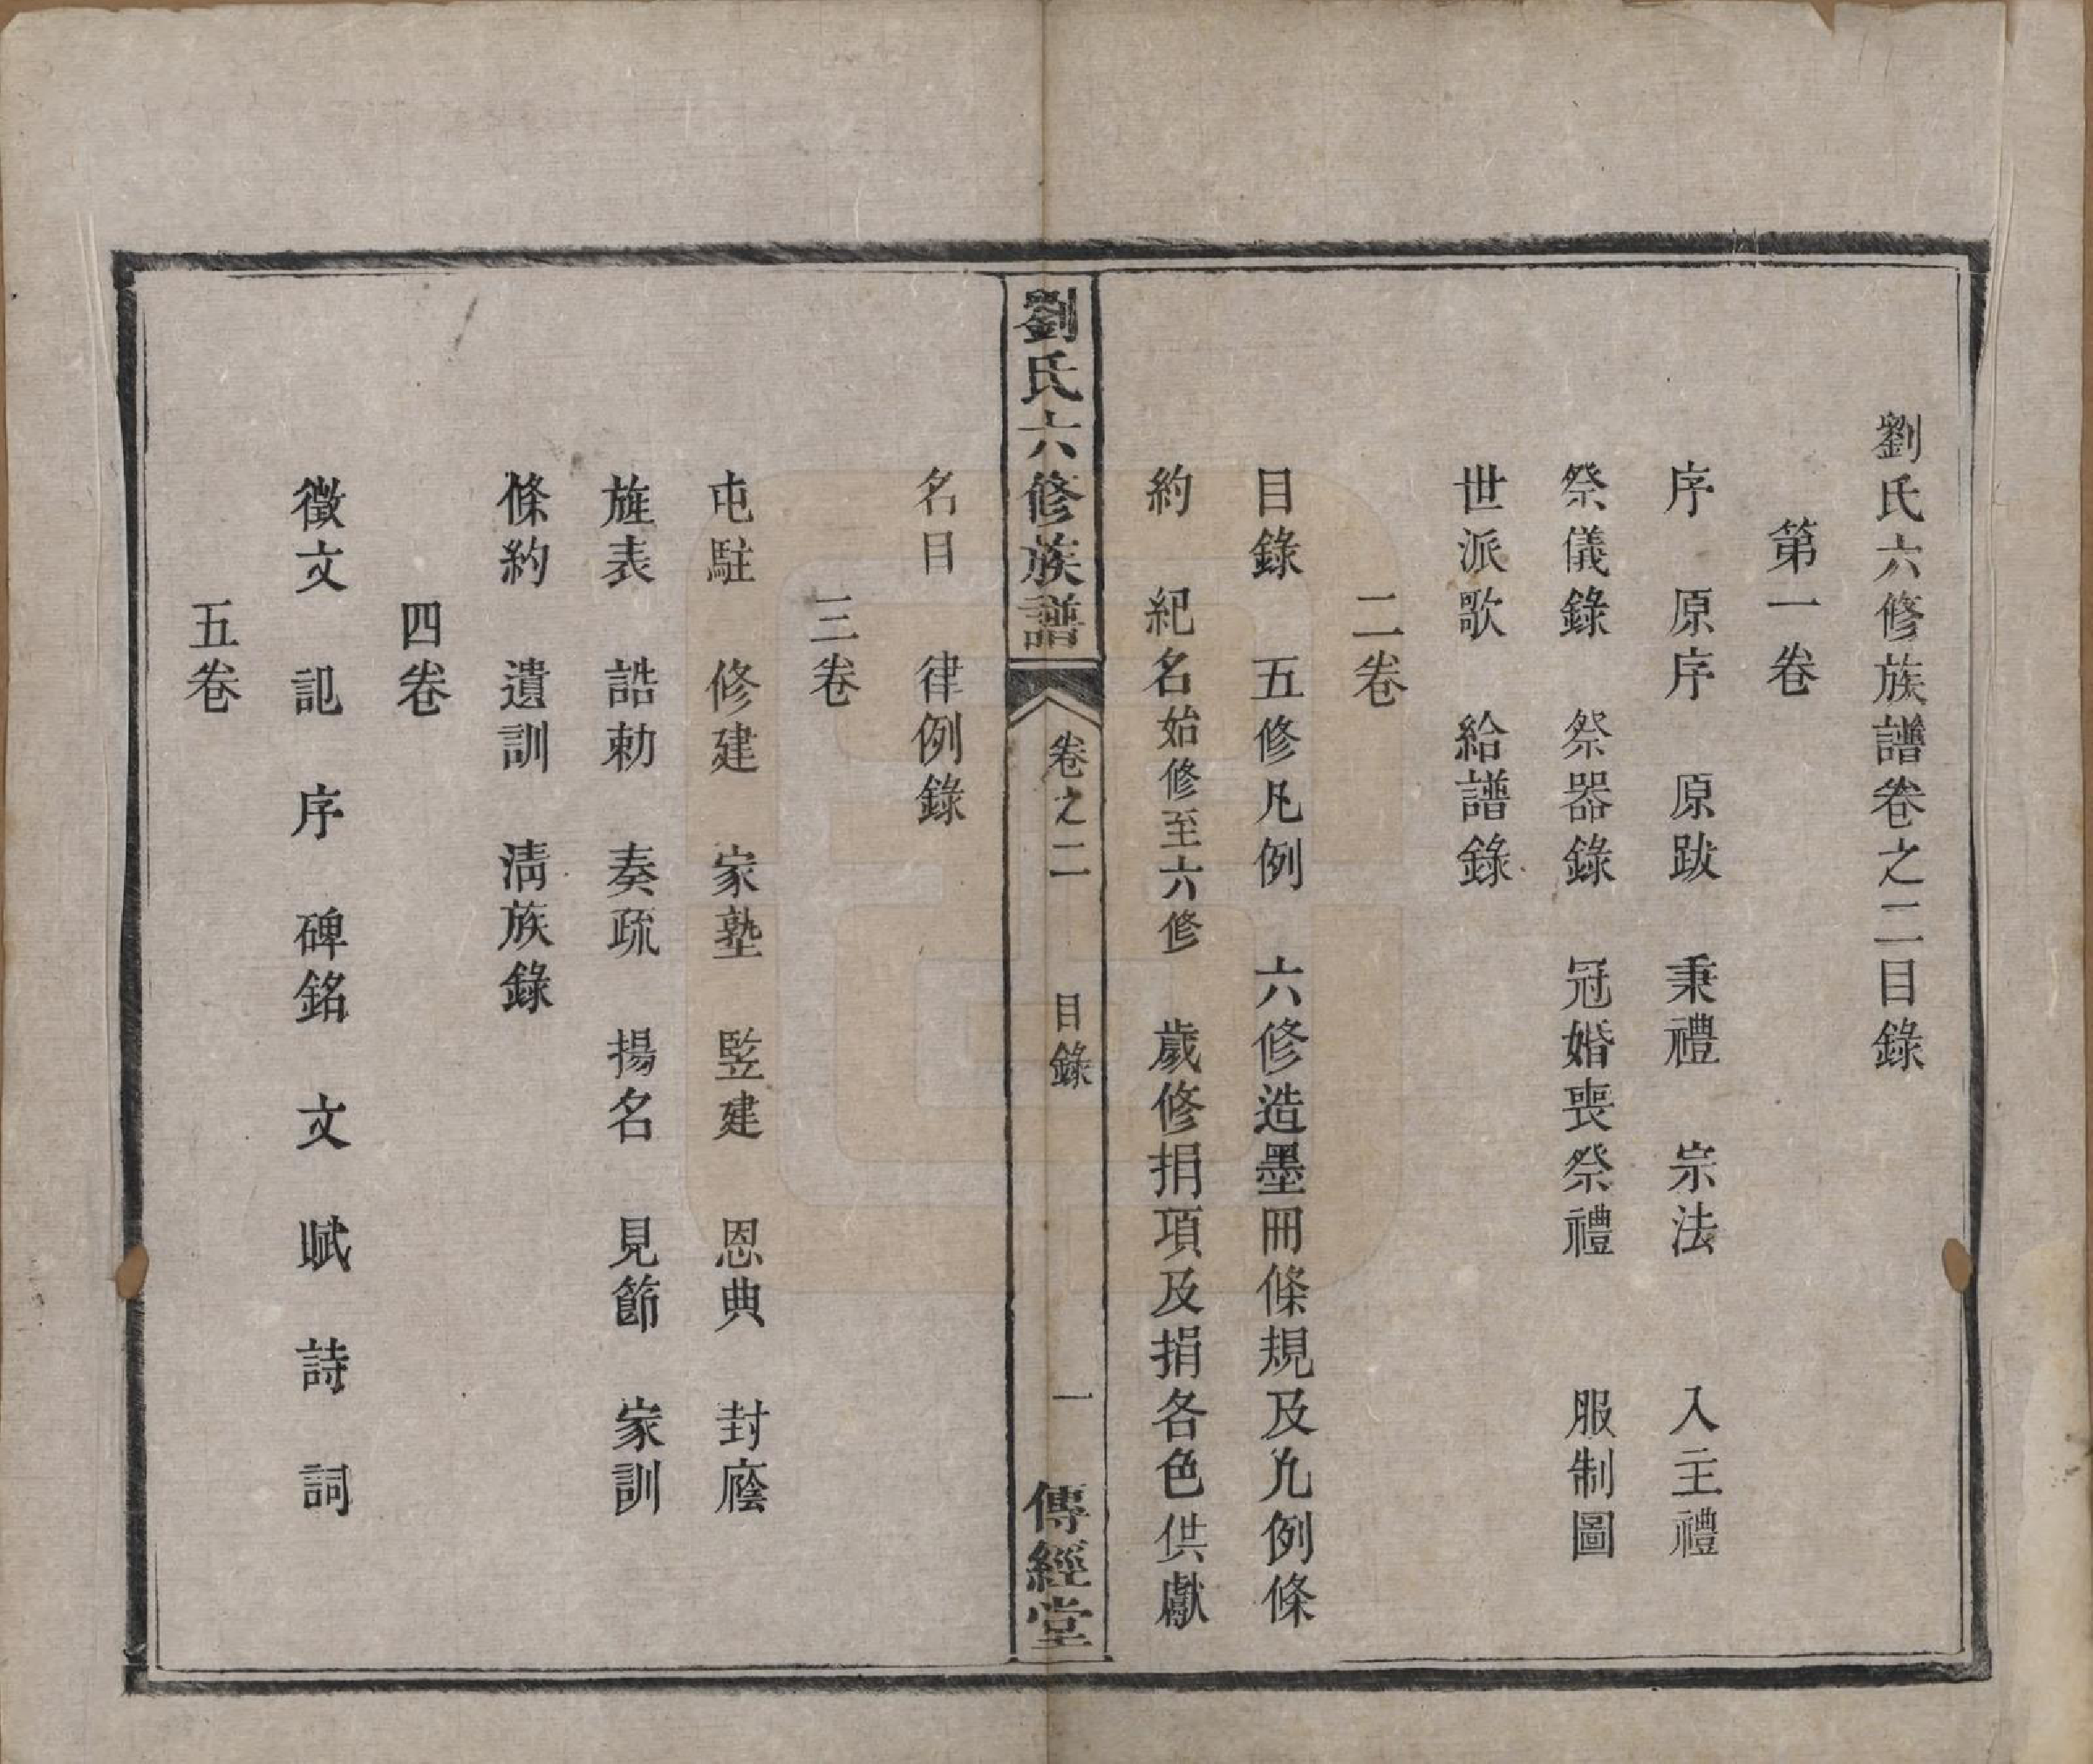 劉氏六修族譜卷之二目錄
第一卷
序 原序 原跋 秉禮 宗法 入主禮
祭儀錄 祭器錄 冠婚喪祭禮 服制圖
世派歌 給譜錄
二卷
目錄 五修凡例 六修造墨冊條規及凣例條
約 紀名始修至六修 歲修捐項及捐各色供獻
劉氏六修族譜 卷之二 目錄 一 傳經堂
名目 律例錄
三卷
屯駐 修建 家塾 竪建 恩典 封廕
旌表 誥勅 奏疏 揚名 見節 家訓
條約 遺訓 淸族錄
四卷
徵文 記 序 碑銘 文 賦 詩 詞
五卷